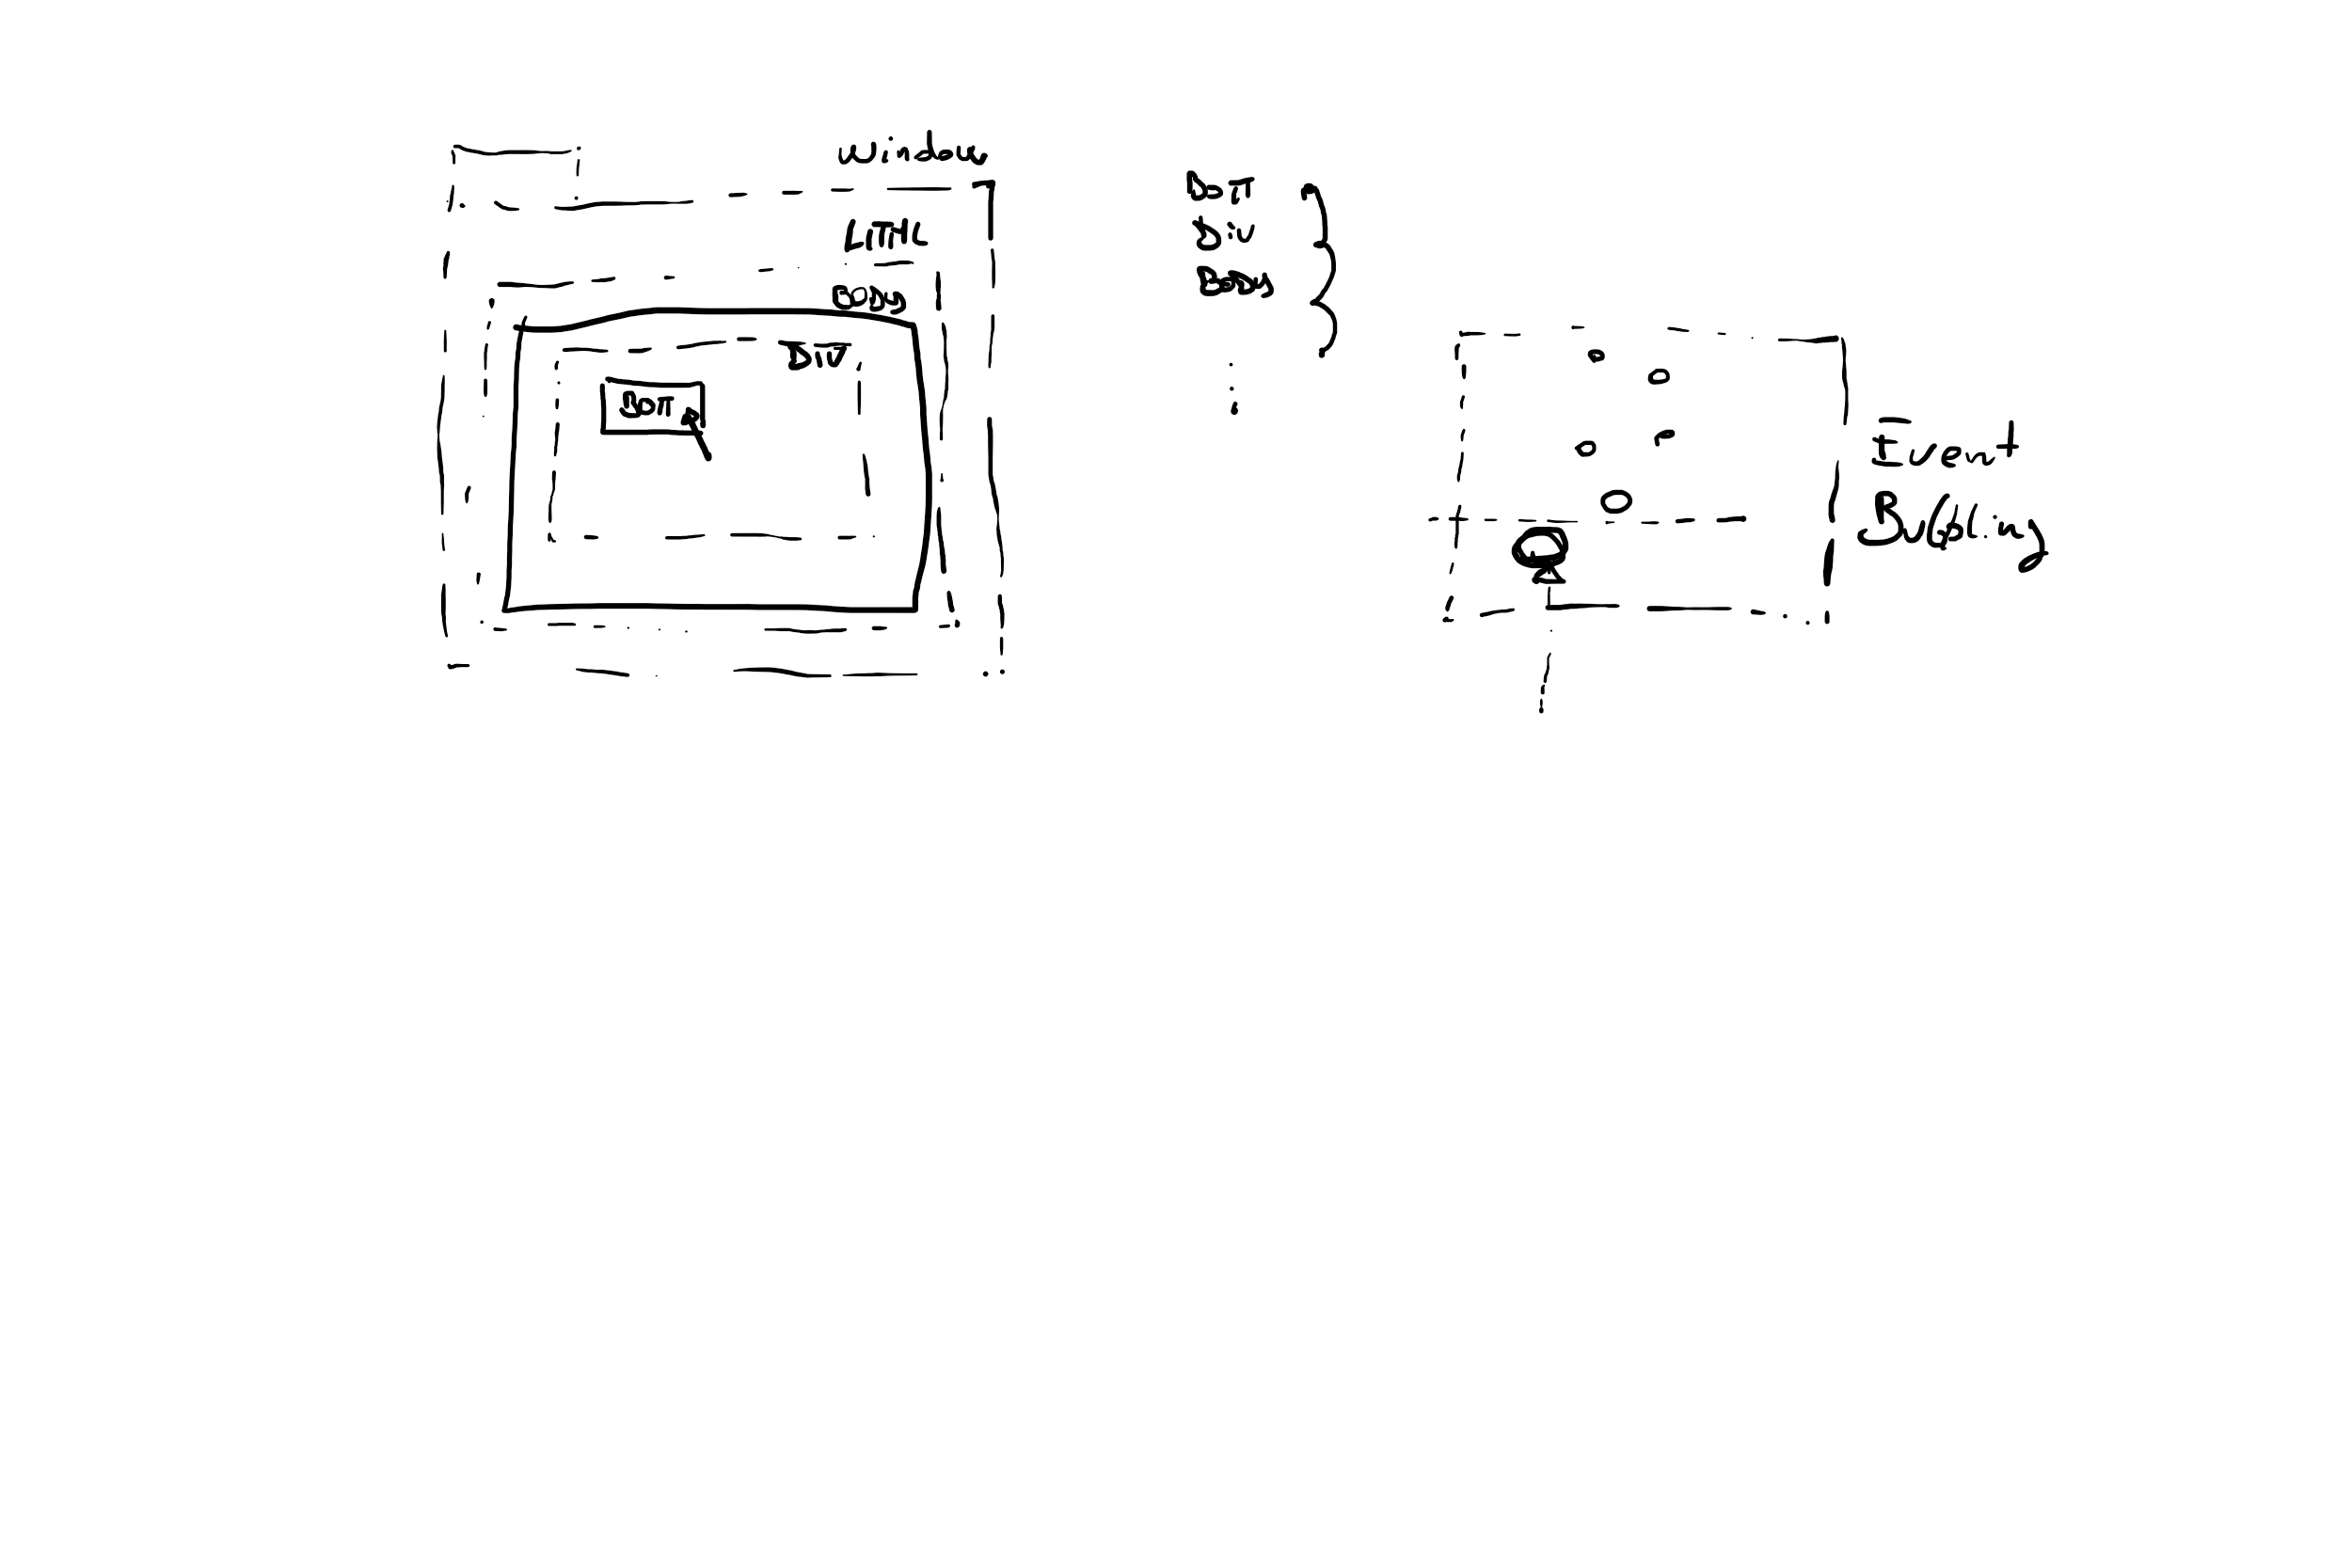 window
HTML
BODY
DIV
BOTT
BoTT
Div
Body
Event
Bubbling